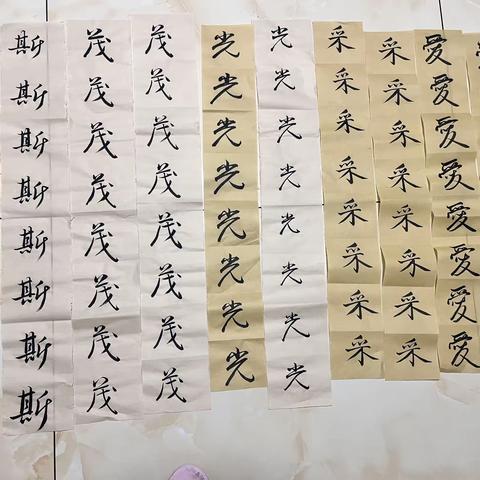 斯斯斯斯斯斯斯斯
茂茂茂茂茂茂茂茂
茂茂茂茂茂茂茂茂
光光光光光光光光
光光光光光光光光
采采采采采采采采
采采采采采采采采
愛愛愛愛愛愛愛愛